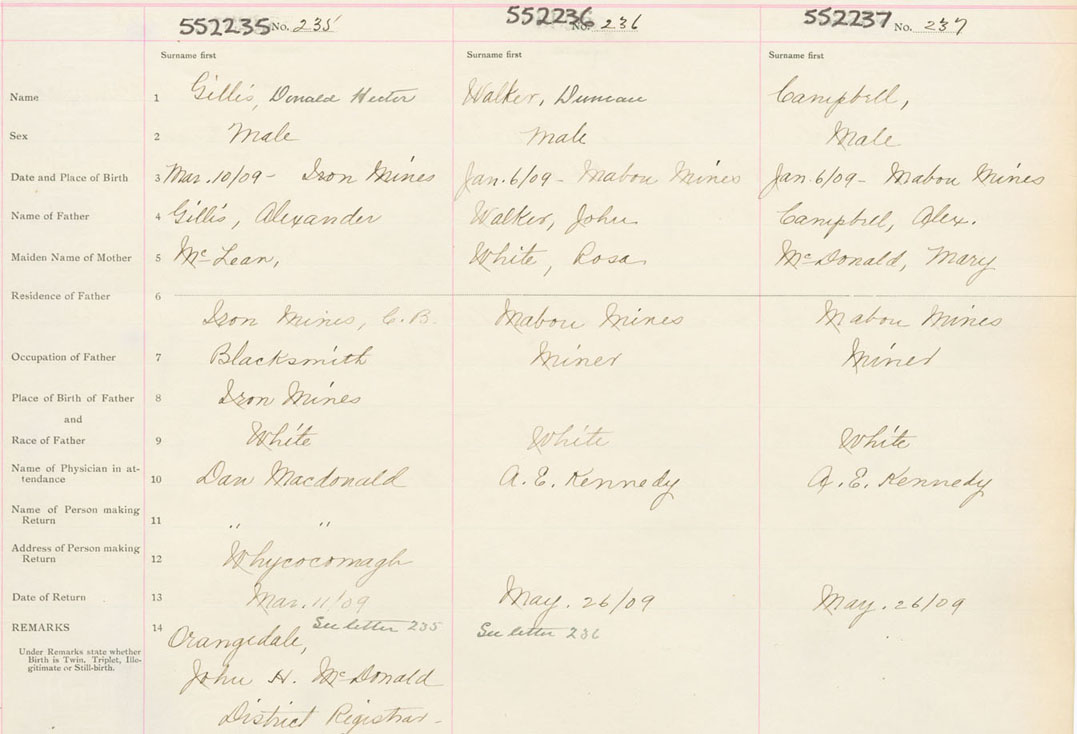 552235 No. 235 552236 No. 236 552237 No. 237
Surname first Surname first Surname first
Name 1 Gillis, Donald Hector Walker, Duncan Campbell,
Sex 2 Male Male Male
Date and Place of Birth 3 Mar. 10/09 - Iron Mines Jan. 6/09 - Mabou Mines Jan 6/09 - Mabou Mines
Name of Father 4 Gillis, Alexander Walker, John Campbell, Alex.
Maiden Name of Mother 5 McLean, White, Rosa McDonald, Mary
Residence of Father 6
Iron Mines, C.B. Mabou Mines Mabou Mines
Occupation of Father 7 Blacksmith Miner Miner
Place of Birth of Father 8 Iron Mines
and
Race of Father 9 White White White
Name of Physician in at-
tendance 10 Dan Macdonald A. E. Kennedy A. E. Kennedy
Name of Person making
Return 11 " "
Address of Person making
Return 12 Whycocomagh
Date of Return 13 Mar. 11/09 May. 26/09 May. 26/09
REMARKS 14 See letter 235 See letter 236
Orangedale,
Under Remarks state whether
Birth is Twin, Triplet, Ille-
gitimate or Still-birth.
John H. McDonald
District Registrar -